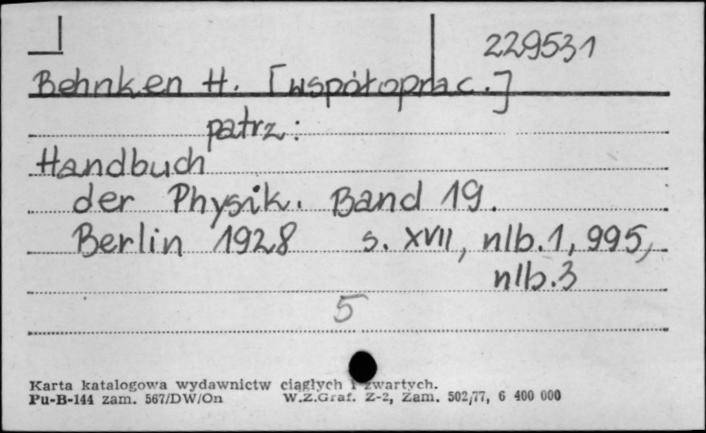 229531
Behnken H. [współoprac.]
patrz:
Handbuch
der Physik. Band 19.
Berlin 1928 s. XVII, nlb.1, 995,
nlb.3
5
Karta katalogowa wydawnictw ciągłych i zwartych.
Pu-B-144 zam. 567/DW/On W.Z.Graf. Z-2, Zam. 502/77, 6 400 000